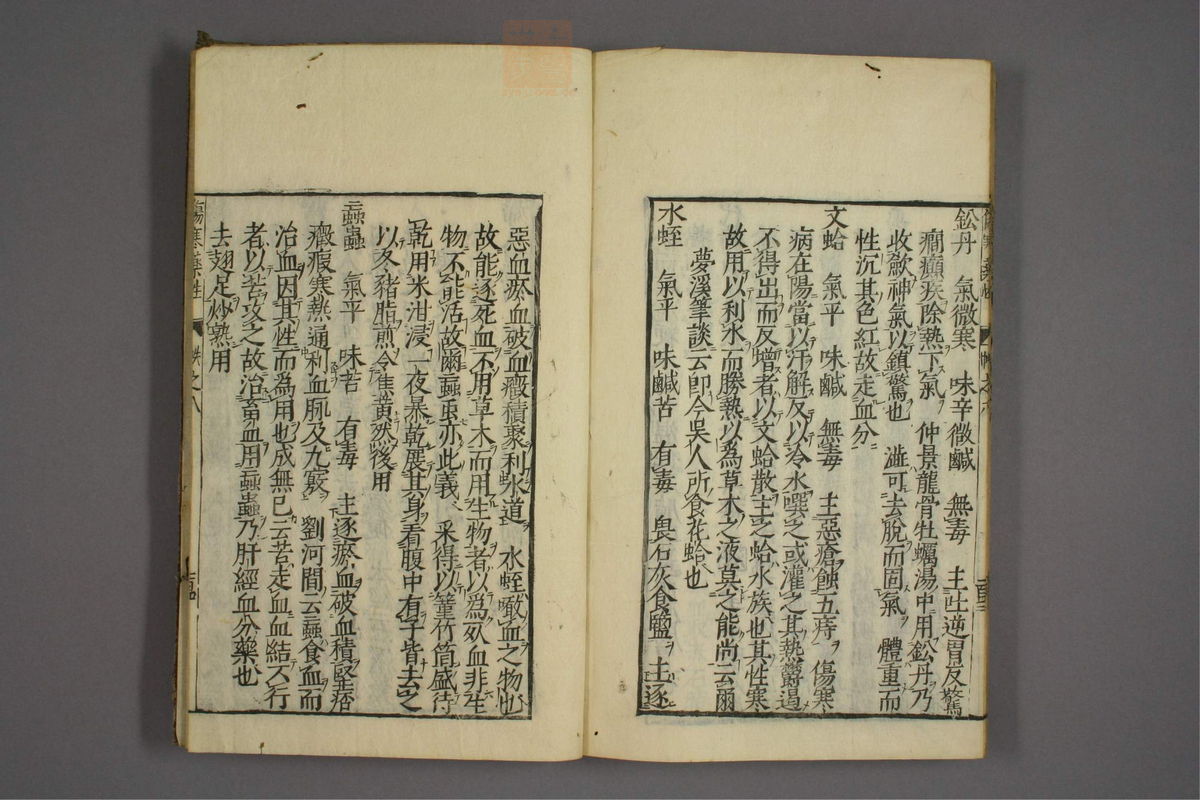 鈆丹　氣微寒　味辛微鹹　無毒　主吐逆胃反驚
癎癲疾除熱下氣　仲景龍骨牡蠣湯中用鈆丹乃
收歛神氣以鎮驚也　澁可去脫而固氣　體重而
性沉其色紅故走血分
文蛤　氣平　味鹹　無毒　主惡瘡蝕五痔　傷寒
病在陽當以汗解反以冷水噀之或灌之其熱欝遏
不得出而反增者以文蛤散主之蛤水族也其性寒
故用以利水而勝熱以爲草木之液莫之能尚云爾
夢溪筆談云卽今吳人所食花蛤也
水蛭　氣平　味鹹苦　有毒　畏石灰食鹽　主逐
惡血瘀血破血癥積聚利水道　水蛭噉血之物也
故能逐死血不用草木而用生物者以爲死血非生
物不能活故爾蝱䖝亦此義　采得以䈽竹筒盛待
乾用米泔浸一夜暴乾展其身看腹中有子皆去之
以冬豬脂煎令焦黄然後用
蝱蟲　氣平　味苦　有毒　主逐瘀血破血積堅痞
癥瘕寒熱通利血脉及九竅　劉河間云蝱食血而
治血因其性而爲用也成無已云苦走血血結不行
者以苦攻之故治畜血用蝱蟲乃肝經血分藥也
去翅足炒熟用
傷寒藥性　帙之八